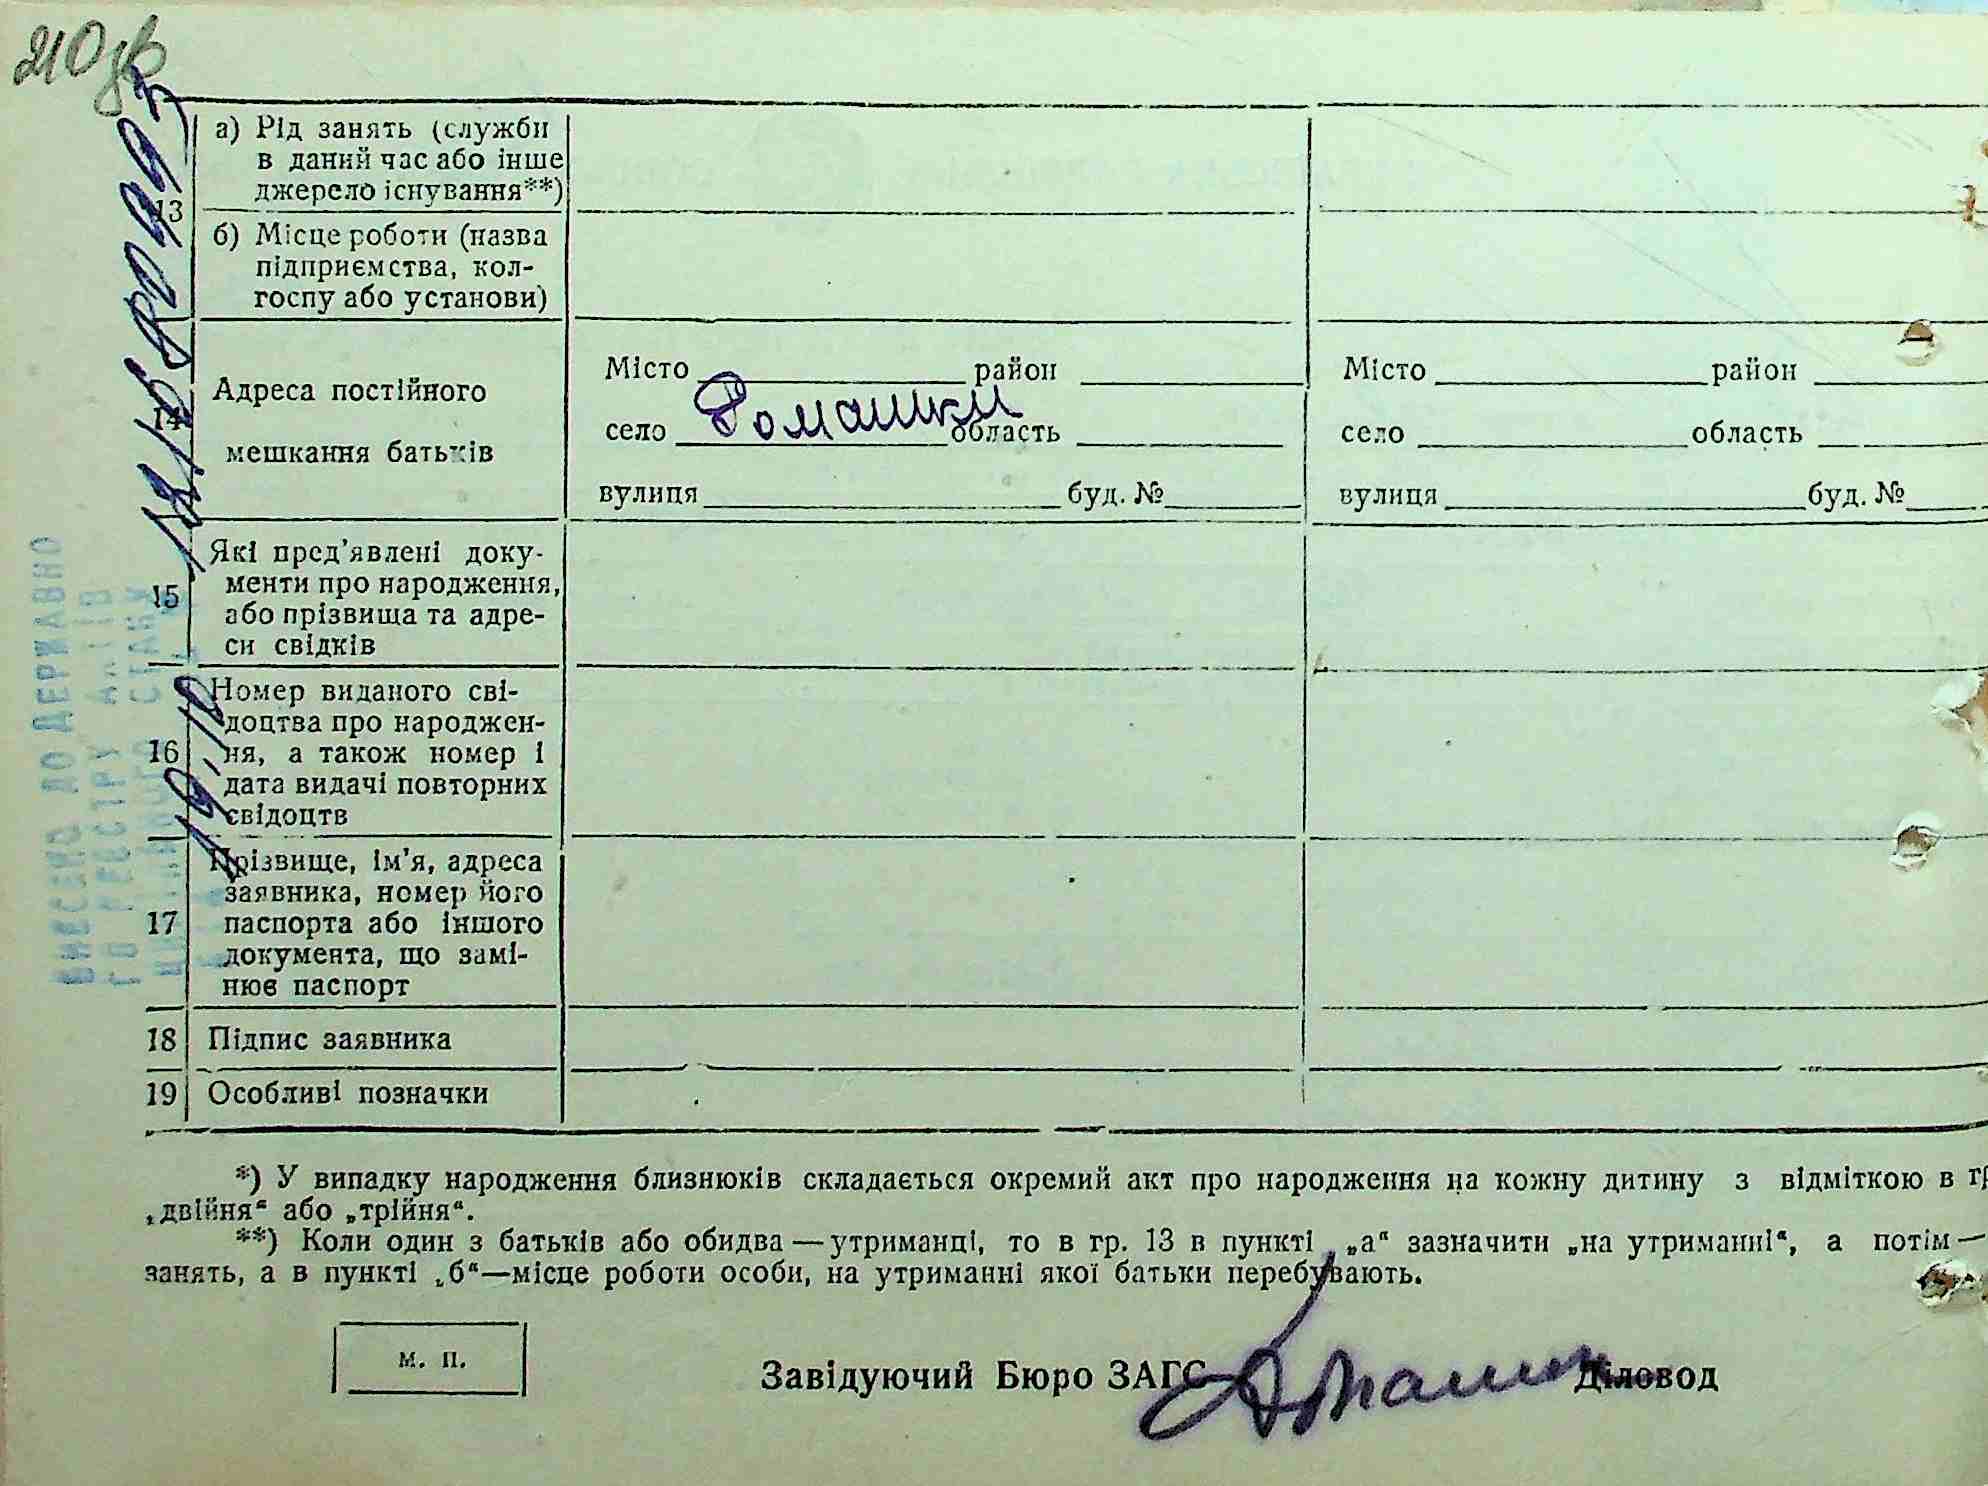 210зв
13 а) Рід занять (служби
в даний час або інше
джерело існування**)
б) Місце роботи (назва
підприємства, кол-
госпу або установи)
14 Адреса постійного
мешкання батьків
Місто район
село Ромашки область
вулиця буд. №
Місто район
село область
вулиця буд. №
15 Які пред’явлені доку-
менти про народження,
або прізвища та адре-
си свідків
16 Номер виданого сві-
доцтва про народжен-
ня, а також номер і
дата видачі повторних
свідоцтв
17 Прізвище, ім’я, адреса
заявника, номер його
паспорта або іншого
документа, що замі-
нює паспорт
18 Підпис заявника
19 Особливі позначки
ВНЕСЕНО ДО ДЕРЖАВНО
ГО РЕЄСТРУ АКТІВ
*) У випадку народження близнюків складається окремий акт про народження на кожну дитину з відміткою в гр
„двійня“ або „трійня“.
**) Коли один з батьків або обидва—утриманці, то в гр. 13 в пункті „а“ зазначити „на утриманні“, а потім—
занять, а в пункті „б“—місце роботи особи, на утриманні якої батьки перебувають.
М. П.
Завідуючий Бюро ЗАГС Діловод